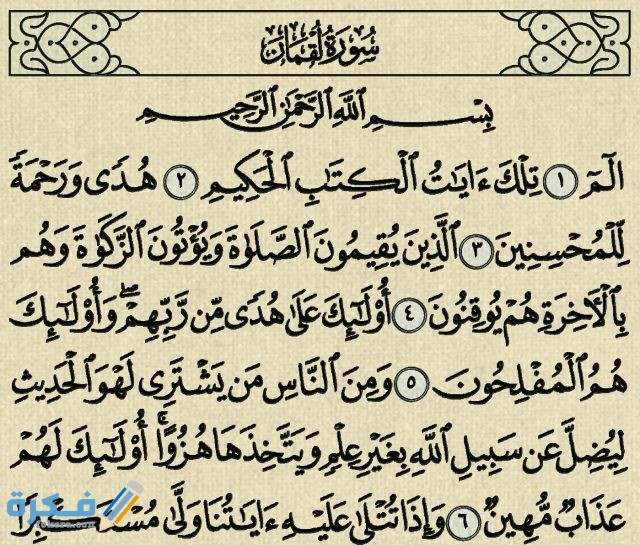 سُورَةُ لُقْمَانَ
بِسْمِ ٱللَّهِ ٱلرَّحْمَٰنِ ٱلرَّحِيمِ
الٓمٓ ١ تِلْكَ ءَايَٰتُ ٱلْكِتَٰبِ ٱلْحَكِيمِ ٢ هُدًى وَرَحْمَةً
لِّلْمُحْسِنِينَ ٣ ٱلَّذِينَ يُقِيمُونَ ٱلصَّلَوٰةَ وَيُؤْتُونَ ٱلزَّكَوٰةَ وَهُم
بِٱلْأَخِرَةِ هُمْ يُوقِنُونَ ٤ أُوْلَٰٓئِكَ عَلَىٰ هُدًى مِّن رَّبِّهِمْۖ وَأُوْلَٰٓئِكَ
هُمُ ٱلْمُفْلِحُونَ ٥ وَمِنَ ٱلنَّاسِ مَن يَشْتَرِى لَهْوَ ٱلْحَدِيثِ
لِيُضِلَّ عَن سَبِيلِ ٱللَّهِ بِغَيْرِ عِلْمٍ وَيَتَّخِذَهَا هُزُوًاۚ أُوْلَٰٓئِكَ لَهُمْ
عَذَابٌ مُّهِينٌ ٦ وَإِذَا تُتْلَىٰ عَلَيْهِ ءَايَٰتُنَا وَلَّىٰ مُسْتَكْبِرًا
فكرة